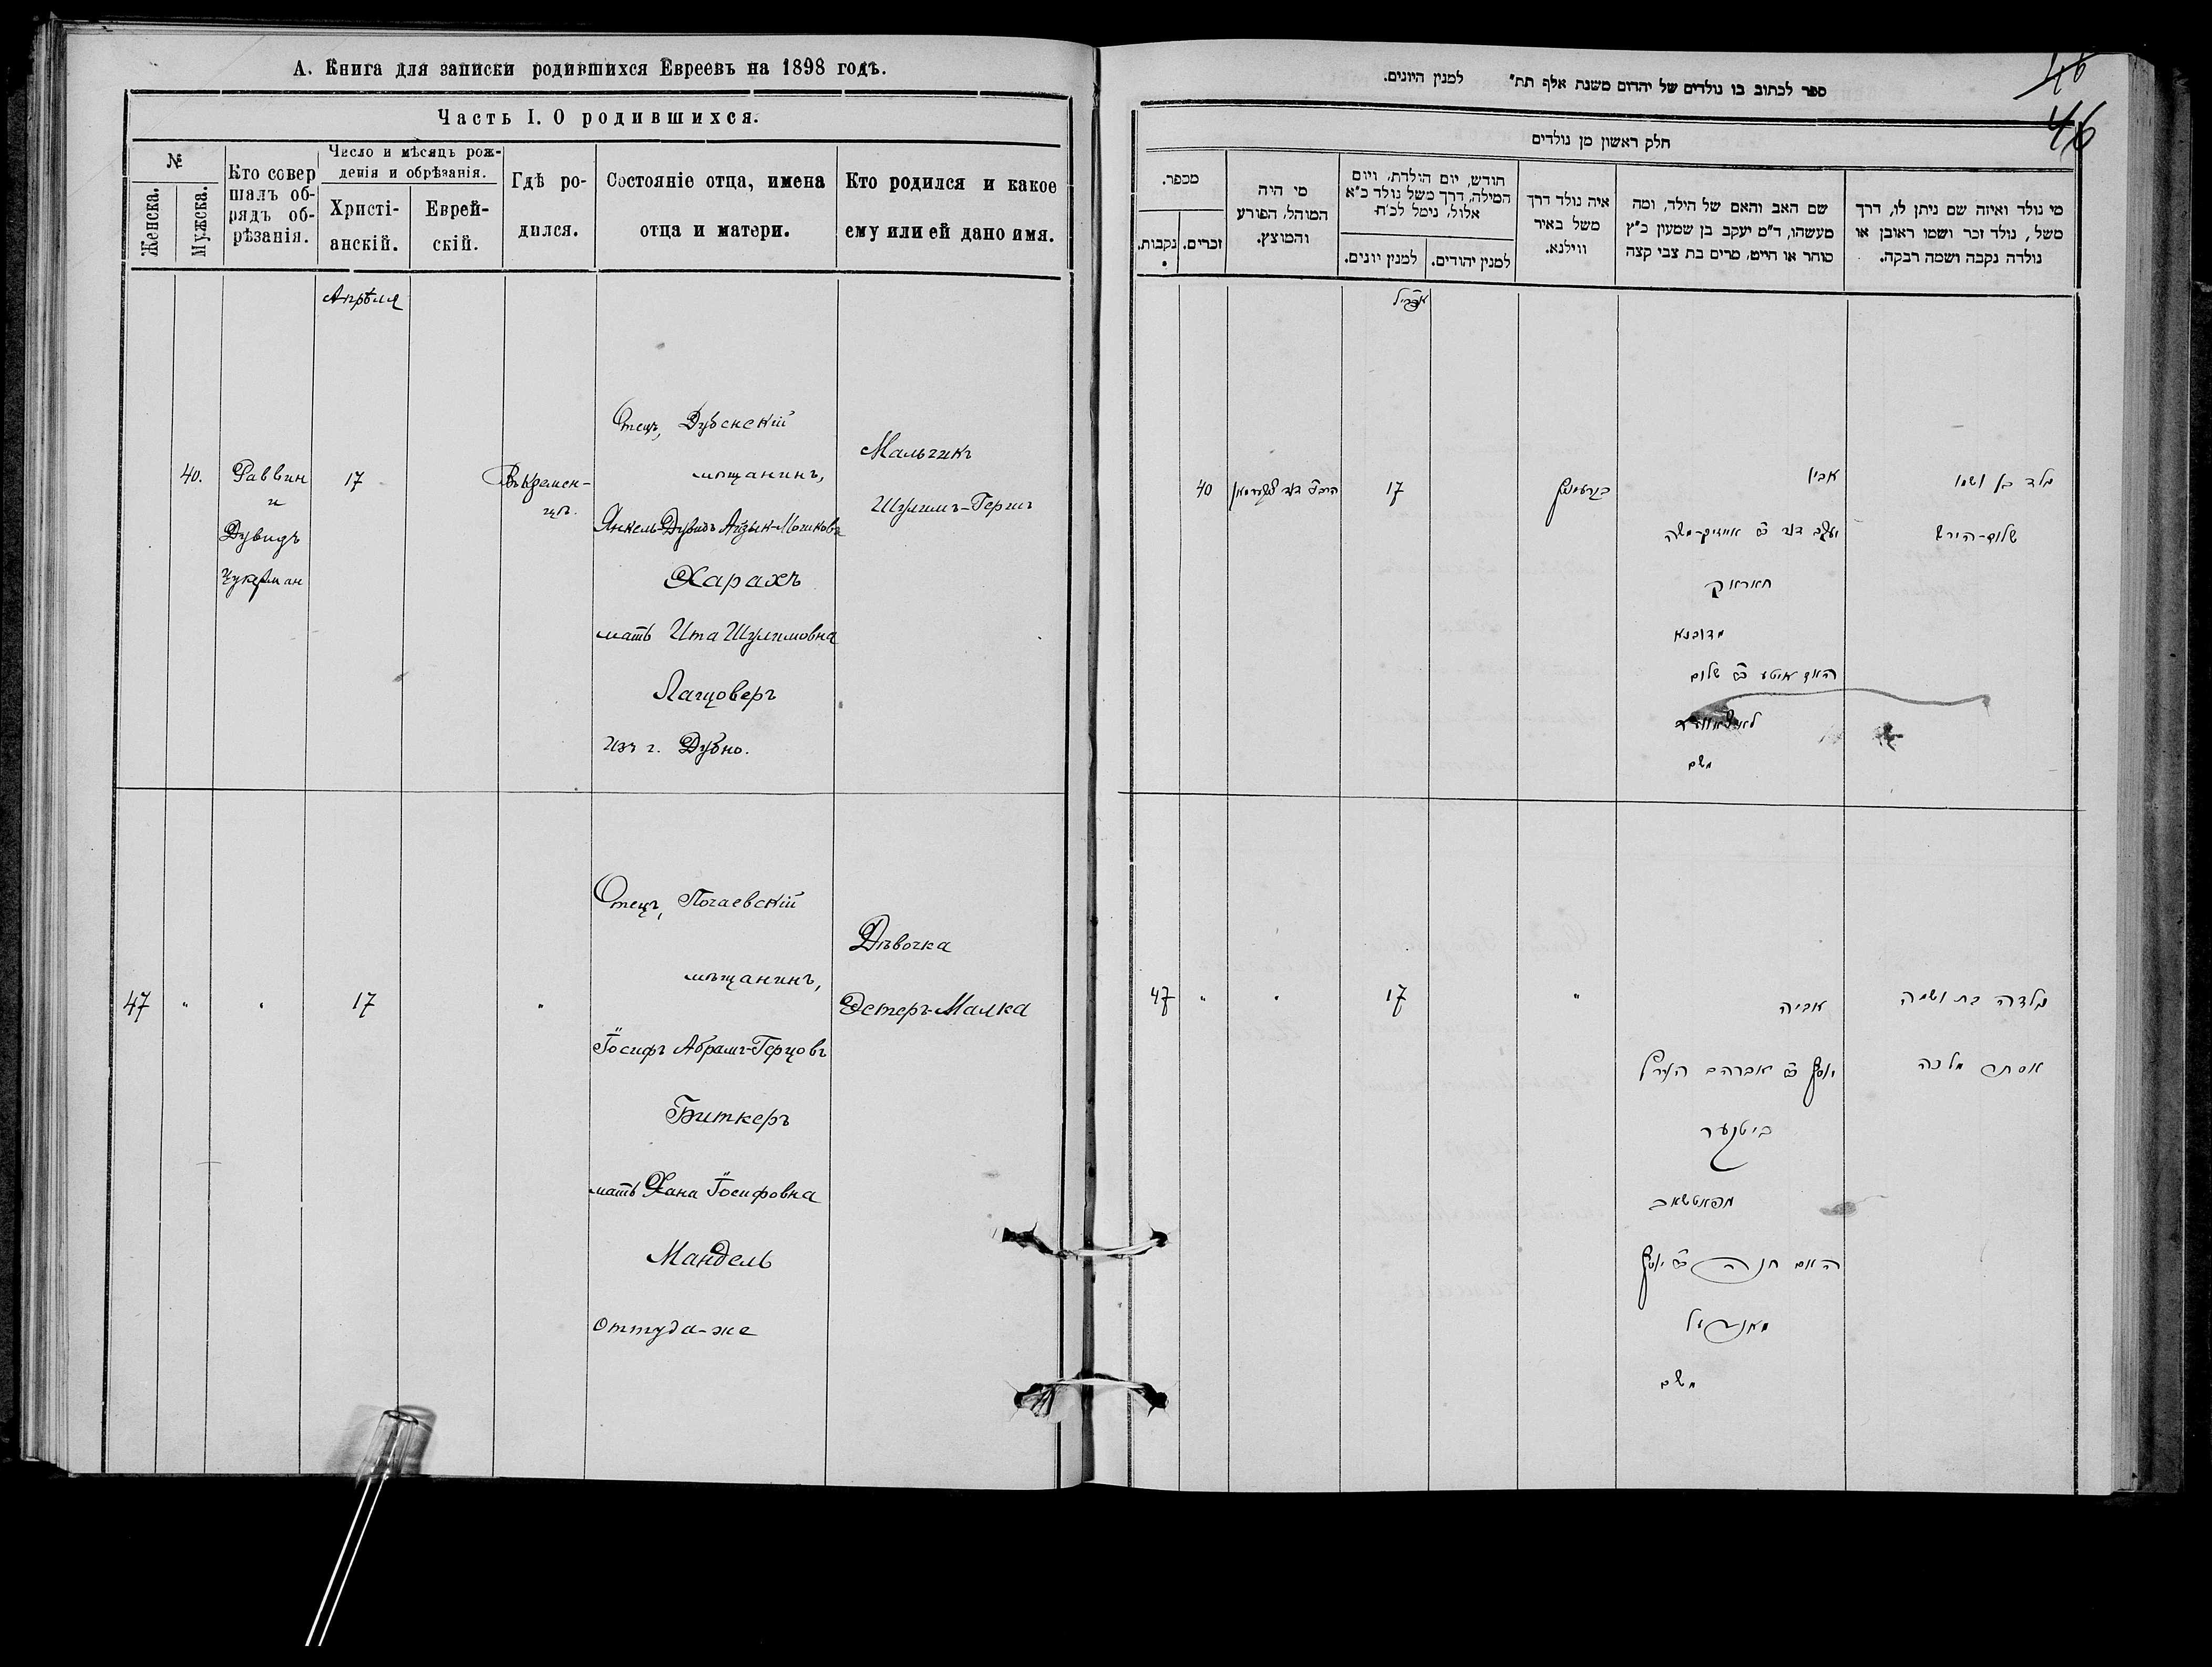 А. Книга для записки родившихся Евреевъ на 1898 годъ.
Часть I. О родившихся.
№
Женска.
Мужска.
Кто совер
шалъ об-
рядъ об-
рѣзанія.
Число и мѣсяцъ рож-
денія и обрѣзанія.
Христі-
анскій.
Еврей-
скій.
Гдѣ ро-
дился.
Состояніе отца, имена
отца и матери.
Кто родился и какое
ему или ей дано имя.
Апрѣля
40.
Раввин
и
Дувидъ
Цукерман
17
Въ Кремен-
цѣ.
Отецъ, Дубенскій
мѣщанинъ,
Янкель-Дувидъ Айзык-Мошковъ
Харахъ
мать Ита Шулимовна
Лагцоверъ
изъ г. Дубно.
Мальчикъ
Шулимъ-Гершъ
47
"
"
17
"
Отецъ, Почаевскій
мѣщанинъ,
Іосифъ Абрамъ-Герцовъ
Биткеръ
мать Хана Іосифовна
Мандель
оттуда-же
Дѣвочка
Эстеръ-Малка
46
46
ספר לכתוב בו נולדים של יהדום משנת אלף תת" למנין היונים.
חלק ראשון מן נולדים
מכפר.
נקבות.
זכרים.
מי היה
המוהל, הפורע
והמוצץ.
חודש, יום הולדת, ויום
המילה, דרך משל נולד כ"א
אלול, נימל לכ"ח
למנין יונים.
למנין יהודים.
איה נולד דרך
משל באיר
ווילנא.
שם האב והאם של הילד, ומה
מעשהו, ד"מ יעקב בן שמעון כ"ץ
סוחר או חייט, מרים בת צבי קצה
מי נולד ואיזה שם ניתן לו, דרך
משל, נולד זכר ושמו ראובן או
נולדה נקבה ושמה רבקה.
אפריל
40
17
אביו
יעקב דוד ב"ר אייזיק-משה
חאראק
מדובנא
האם איטע ב"ר שלום
משם
נולד בן ושמו
שלום-הירש
47
"
"
17
"
אביה
יוסף ב"ר אברהם הערץ
ביטקער
מפאטשאב
האם חנה ב"ר יוסף
מאנדיל
משם
נולדה בת ושמה
אסתר מלכה